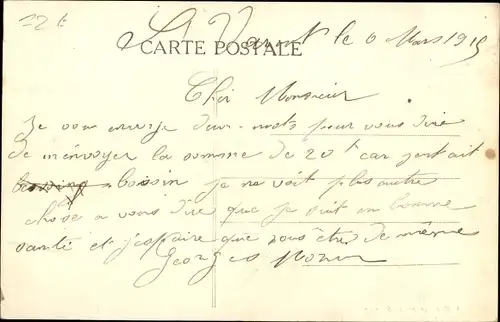 le 6 Mars 1915
CARTE POSTALE
Cher Monsieur
Je vous envoije deux mots pour vous dire
de m'envoyer la somme de 20 f car
boisin je ne voit plus autre
chose a vous dire que je suit en bonne
santé et j'espaire que vous être de même
Georges